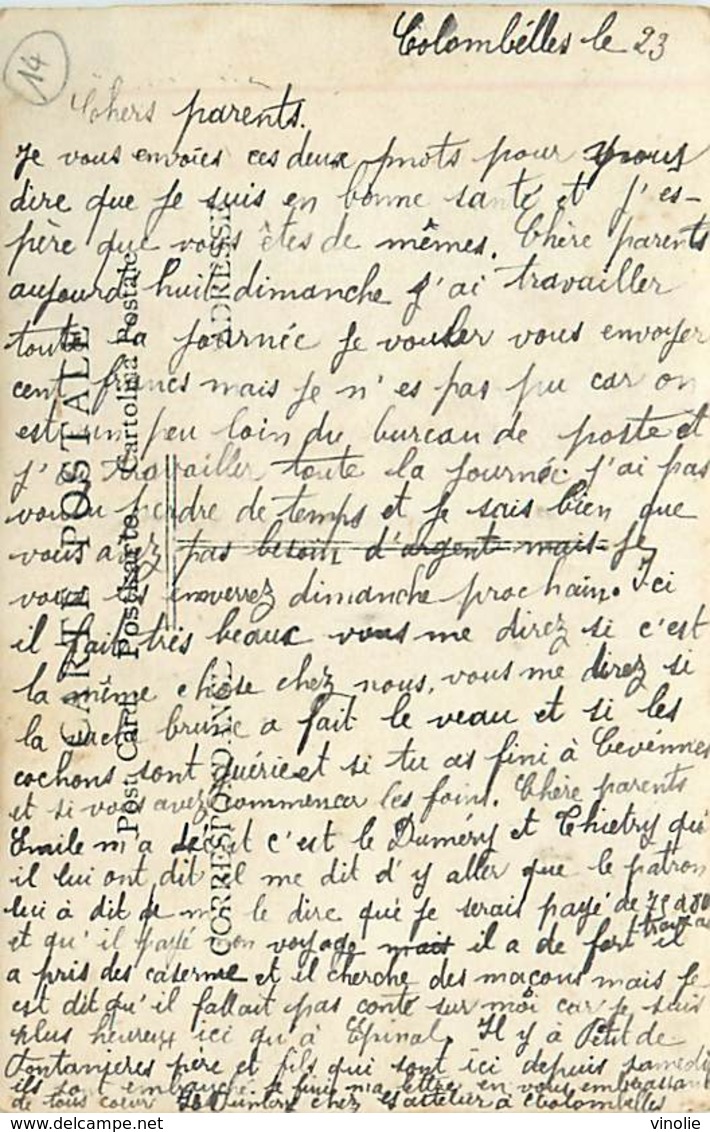 14
Colombélles le 23
Chers parents.
Je vous envoies ces deux mots pour vous
dire que je suis en bonne santé et j'es-
père que vous êtes de mêmes. Chère parents
aujourd huit dimanche j'ai travailler
toute la journée je vouler vous envoyer
cent francs mais je n'es pas pu car on
est un peu loin du bureau de poste et
j'ai travailler toute la journée j'ai pas
voulu perdre de temps et je sais bien que
vous avez pas besoin d'argent mais je
vous les enverrez dimanche prochain. Ici
il fait très beaux vous me direz si c'est
la même chose chez nous, vous me direz si
la vache brune a fait le veau et si les
cochons sont guérie et si tu as fini à Cevénnes
et si vous avez commencer les foins. Chère parents
Emile m'a décrit c'est le Duméry et Thietry qu'
il lui ont dit il me dit d'y aller que le patron
lui à dit de me le dire que je serais payé de 75 a 80
et qu'il payé mon voyage mais il a de fort travaux il
a pris des caserme et il cherche des maçons mais je
est dit qu'il fallait pas conté sur moi car je suis
plus heureux ici qu'à Epinal. Il y à Petit de
Fontanjeres père et fils qui sont ici depuis samedi
ils sont embauché je fini ma lettre en vous embrassant
de tous coeur chez à Colombelles
CARTE POSTALE
Post Card Postkarte Cartolina Postale
CORRESPONDANCE
ADRESSE
vinolie